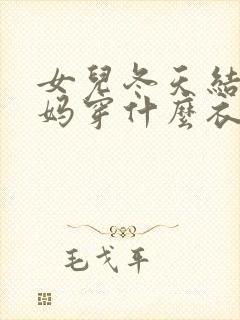 女兒冬天結
妈穿什麼衣
毛戈平